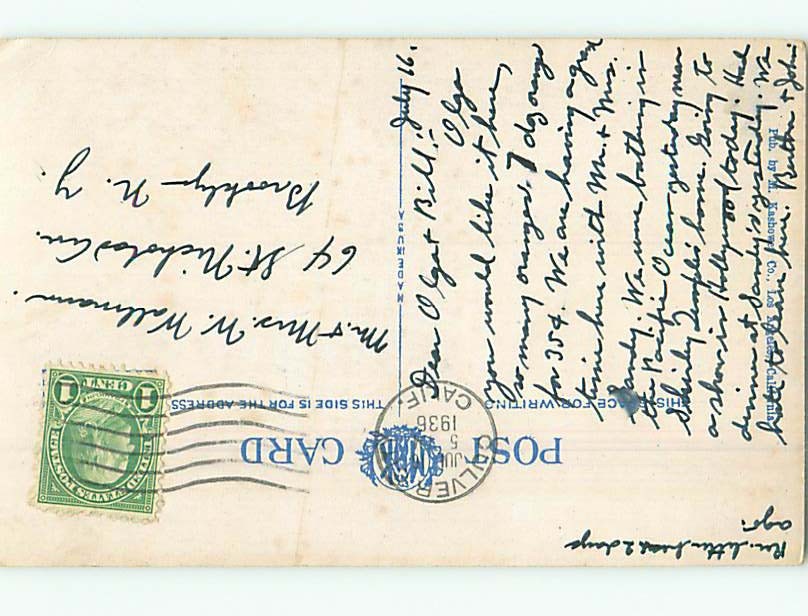 POST CARD
THIS SPACE FOR WRITING
THIS SIDE IS FOR THE ADDRESS
MADE IN U.S.A.
Pub. by M. Kashower Co., Los Angeles, California
CULVER CITY
JUL
5 PM
1936
CALIF.
UNITED STATES POSTAGE
1 CENT 1
July 16.
Dear Olga & Bill:-
Olga
you would like it here,
so many oranges. 7 dz oranges
for 35¢. We are having a great
time here with Mr. & Mrs.
Sandy. We were bathing in
the Pacific Ocean yesterday, men
Shirley Temple's home. Going to
a show in Hollywood today. Had
dinner at Sandy's yesterday. We
hate to leave here. & John
Rec. letter 2 days
ago.
Mr. & Mrs. W. Wallmann.
64 St. Nicholas Ave.
Brooklyn N. Y.